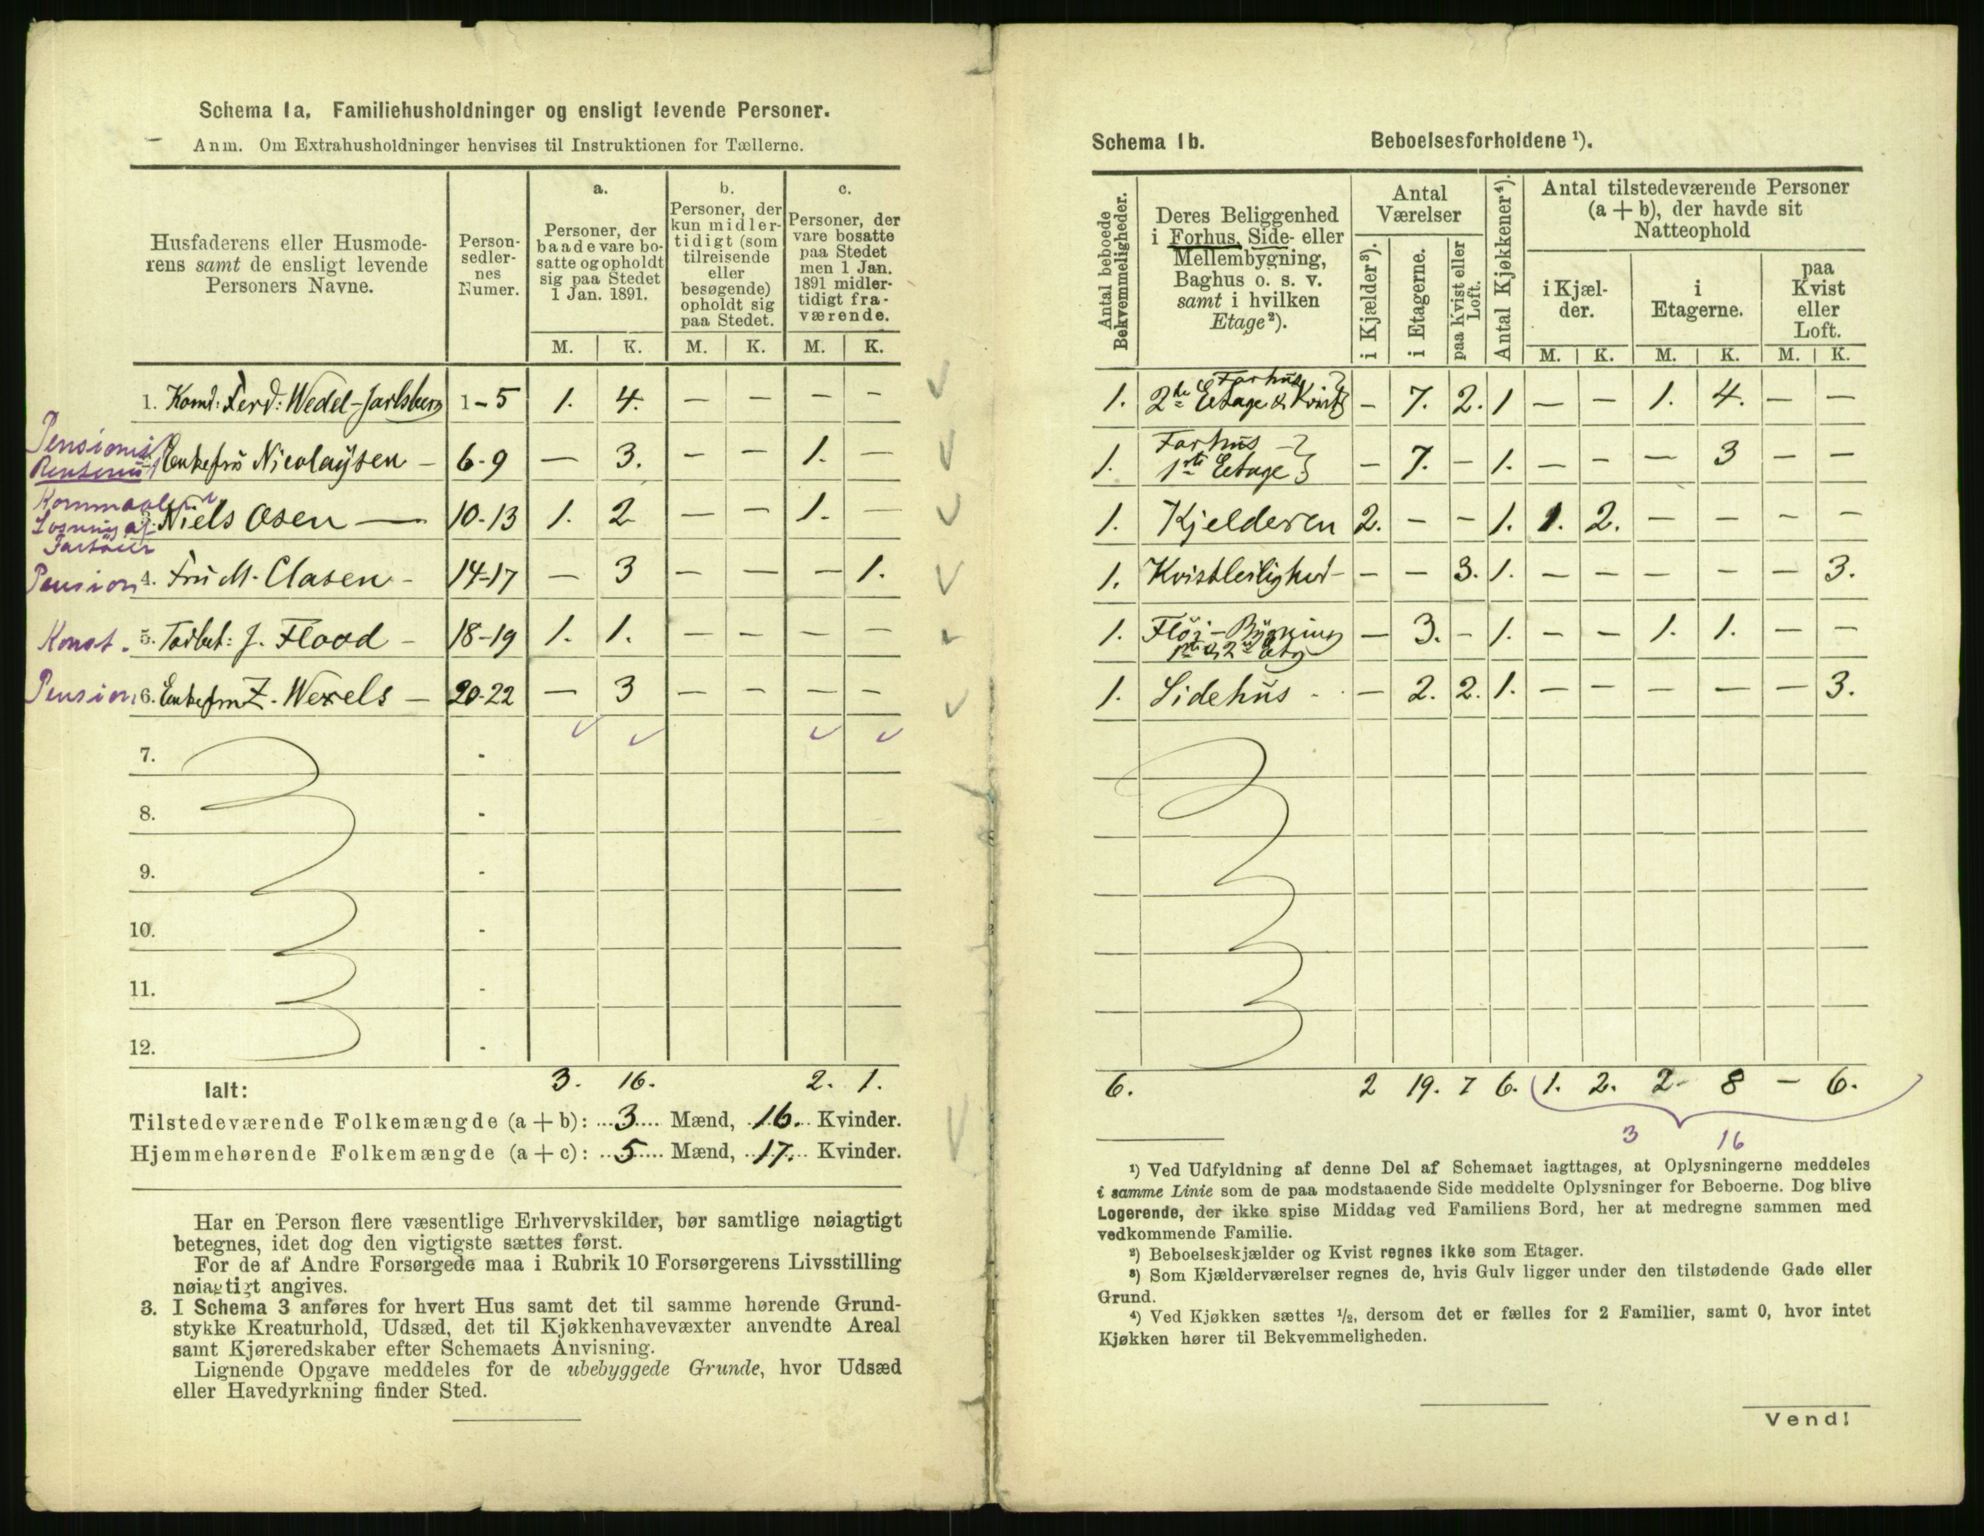 Schema 1a. Familiehusholdninger og ensligt levende Personer.
Anm. Om Extrahusholdninger henvises til Instruktionen for Tællerne.
Husfaderens eller Husmode-
rens samt de ensligt levende
Personers Navne.
Person-
sedler-
nes
Numer.
a.
Personer, der
baade vare bo-
satte og opholdt
sig paa Stedet
1 Jan. 1891.
b.
Personer, der
kun midler-
tidigt (som
tilreisende
eller
besøgende)
opholdt sig
paa Stedet.
c.
Personer, der
vare bosatte
paa Stedet
men 1 Jan.
1891 midler-
tidigt fra-
værende.
M. K. M. K. M. K.
1. Komd: Ferd: Wedel-Jarlsberg 1-5 1. 4. — — — —
Pensionist
Enkefru Nicolaysen - 6-9 — 3. — — 1. —
Niels Osen — 10-13 1. 2 — — 1. —
Pension 4. Fru M. Clasen - 14-17 — 3 — — — 1.
Konst. 5. Toldbet: J. Flood - 18-19 1. 1. — — — —
Pension 6. Enkefru Z. Wexels — 20-22 — 3 — — — —
7.
8.
9.
10.
11.
12.
Ialt: 3. 16. 2. 1.
Tilstedeværende Folkemængde (a + b): 3 Mænd, 16. Kvinder.
Hjemmehørende Folkemængde (a + c): 5 Mænd, 17. Kvinder.
Har en Person flere væsentlige Erhvervskilder, bør samtlige nøiagtigt
betegnes, idet dog den vigtigste sættes først.
For de af Andre Forsørgede maa i Rubrik 10 Forsørgerens Livsstilling
nøiagtigt angives.
3. I Schema 3 anføres for hvert Hus samt det til samme hørende Grund-
stykke Kreaturhold, Udsæd, det til Kjøkkenhavevæxter anvendte Areal
samt Kjøreredskaber efter Schemaets Anvisning.
Lignende Opgave meddeles for de ubebyggede Grunde, hvor Udsæd
eller Havedyrkning finder Sted.
Schema 1b. Beboelsesforholdene ¹).
Antal beboede
Bekvemmeligheder.
Deres Beliggenhed
i Forhus, Side- eller
Mellembygning,
Baghus o. s. v.
samt i hvilken
Etage²).
Antal
Værelser
i Kjælder³).
i Etagerne.
paa Kvist eller
Loft.
Antal Kjøkkener⁴).
Antal tilstedeværende Personer
(a + b), der havde sit
Natteophold
i Kjæl-
der.
i
Etagerne.
paa
Kvist
eller
Loft.
M. K. M. K. M. K.
Forhus
1. 2de Etage & Kvist - 7. 2. 1 — — 1. 4. — —
Forhus
1. 1ste Etage — 7. - 1. — — — 3 — —
1. Kjelderen 2. — — 1. 1. 2. — — — —
1. Kvistleilighed — — 3. 1. — — — — — 3.
1. Fløi-Bygning — 3. - 1. — — 1. 1. — —
1ste & 2den Etg
1. Sidehus - — 2. 2. 1. — — — — — 3.
6. 2 19. 7 6. 1. 2. 2. 8 — 6.
3 16
¹) Ved Udfyldning af denne Del af Schemaet iagttages, at Oplysningerne meddeles
i samme Linie som de paa modstaaende Side meddelte Oplysninger for Beboerne. Dog blive
Logerende, der ikke spise Middag ved Familiens Bord, her at medregne sammen med
vedkommende Familie.
²) Beboelseskjælder og Kvist regnes ikke som Etager.
³) Som Kjælderværelser regnes de, hvis Gulv ligger under den tilstødende Gade eller
Grund.
⁴) Ved Kjøkken sættes ½, dersom det er fælles for 2 Familier, samt 0, hvor intet
Kjøkken hører til Bekvemmeligheden.
Vend!